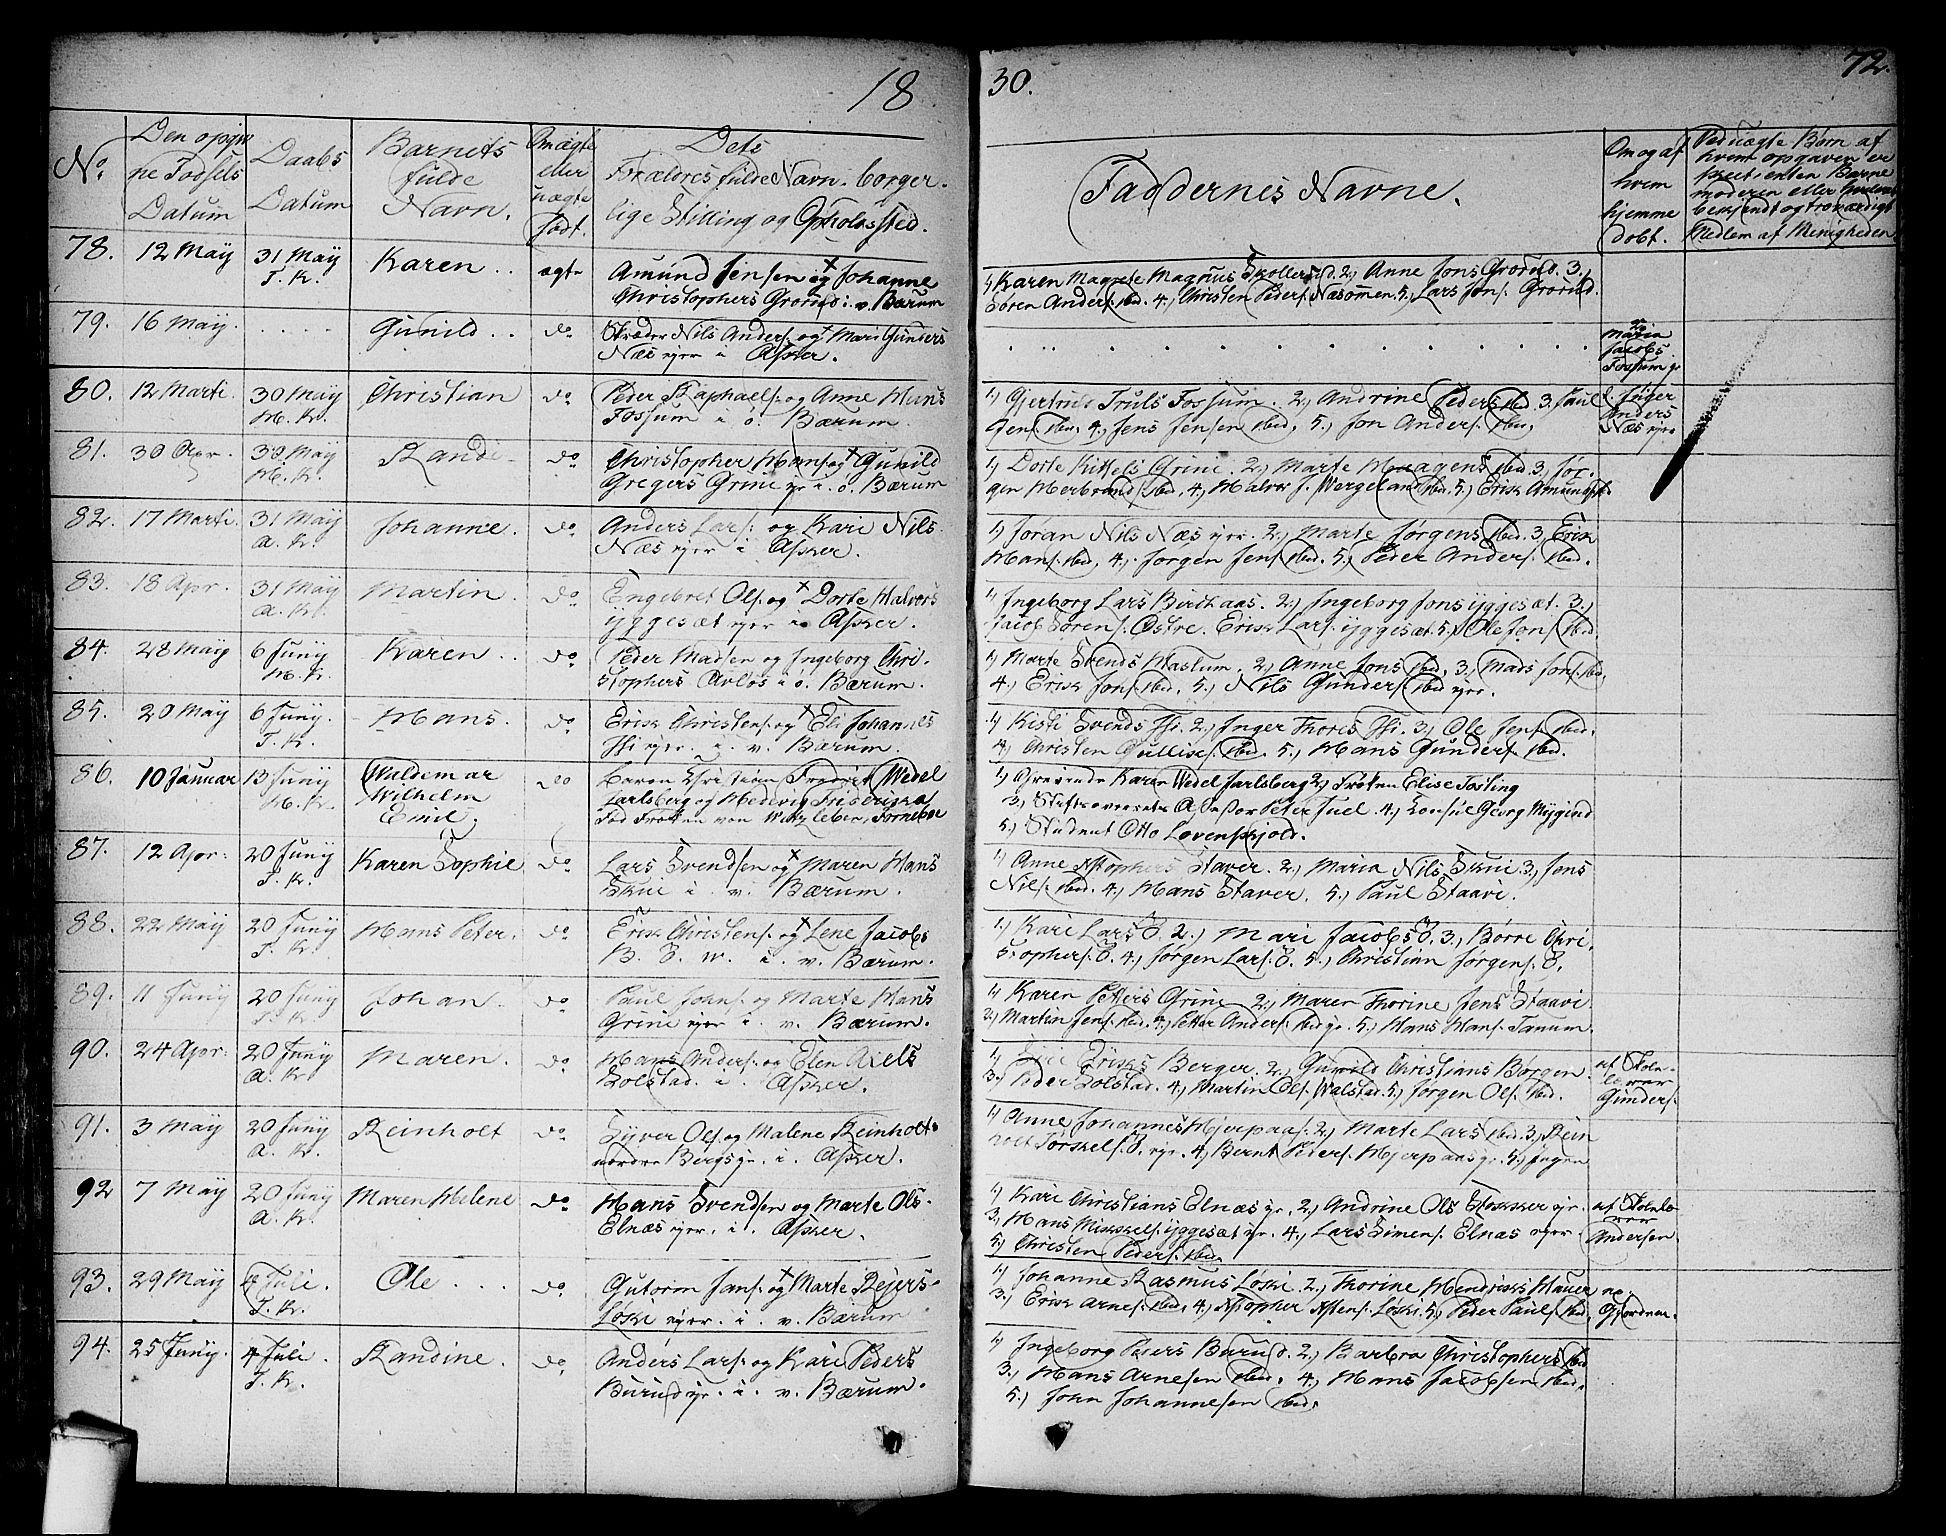 18
30.
72.
No.
Den opgiv
ne Fødsels
Datum
Daabs
Datum
Barnets
fulde
Navn.
Om ægte
eller
uægte
født.
Dets
Forældres fulde Navn, borger.
lige Stilling og Opholdssted.
Faddernes Navne.
Om og af
hvem
hjemme
døbt.
Ved uægte Børn af
hvem opgaven er
skeet, enten Barne
moderen eller
bekjendt og troværdigt
Medlem af Menigheden
78. 12 May 31 May Karen . . ægte Amund Jensen og + Johanne
T. K. Christophers Grorud i v. Bærum
1, Karen Magrete Magnus Skollerud. 2, Anne Jons Grorud. 3,
Søren Anders: ibid. 4, Christen Peders: Næsomen. 5, Lars Jons: Grorud.
79. 16 May . . . . . Gunild . . do Nils Anders: og + Mari Gunders
Næs eyer i Asker.
Maria
Jacobs
Fossum
& Inger
Anders
Næs eyer
80. 12 Marti. 30 May Christian do Peder Raphaels: og Anne Hans
H. K. Fossum i ø. Bærum.
1, Gjertrud Truls Fossum. 2, Andrine Peders ibid. 3, Paul
Jens: ibid, 4, Jens Jensen ibid, 5, Jon Anders: ibid.
81. 30 Apr. 30 May Randi do Christopher Hans: og + Gunild
H. K. Gregers Grini i ø. Bærum
1, Dorte Kittels Grini. 2, Marte Haagens ibid. 3, Jør-
gen Herbrand: ibid, 4, Halvor J. Wergeland ibid. 5, Erik Amunds:
82. 17 Marti. 31 May Johanne. do Anders Lars: og Kari Nils
A. K. Næs eyer i Asker.
1, Joran Nils Næs eyer. 2, Marte Jørgens ibid. 3, Erik
Hans: ibid, 4, Jørgen Jens: ibid. 5, Peder Anders: ibid.
83. 18 Apr. 31 May Martin. do Engebret Ols: og + Dorte Halvors
A. K. Yggesæt eyer i Asker.
1, Ingeborg Lars Birdhaas. 2, Ingeborg Jons Yggesæt. 3,
Jacob Sørens: Østre. Erik Lars: Yggesæt. 5, Ole Jons: ibid.
84. 28 May 6 Juny Karen . . do Peder Madsen og Ingeborg Chri-
H. K. stophers Avløs i ø. Bærum.
1, Marte Svends Haslum. 2, Anne Jons ibid. 3, Mads Jons: ibid,
4, Erik Jons: ibid. 5, Nils Gunders: ibid eyer.
85. 20 May 6 Juny. Hans. do Erik Christens: og + Eli Johannes
T. K. eyer. i. v. Bærum.
1, Kisti Svends 2, Inger Thores 3, Ole Jens: ibid.
4, Christen Gulliks: ibid. 5, Hans Gunders: ibid.
86. 10 Januar 13 Juny Waldemar do Baron Christian Fredrik Wedel
H. K. Wilhelm Jarlsberg og Hedevig Friderikka
Emil. fød Frøken von Witzleben, Forneboe
1, Grevinde Karen Wedel Jarlsberg 2, Frøken Elise Tosting
3, Stiftsoverrets Assessor Peter Juel. 4, Konsul Georg Mygind
5, Student Otto Lovenskjold.
87. 12 Apr: 20 Juny Karen Sophie do Lars Svendsen og + Maren Hans
T. K. Skui i. v. Bærum.
1, Anne Kstophers Staver. 2, Maria Nils Skui. 3, Jons
Nils: ibid. 4, Hans Staver. 5, Paul Staavi.
88. 22 May 20 Juny Hans Peter. do Erik Christens: og + Lene Jacobs
T. K. B. S. W. i. v. Bærum.
1, Kari Lars 2, Mari Jacobs 3, Børre Chri-
stophers: 4, Jørgen Lars: 5, Christian Jørgens:
89. 11 Juny 20 Juny Johan. do Paul Johns: og Marte Hans
T. K. Grini eyer i. v. Bærum.
1, Karen Petters Grini. 2, Maren Thorine Jens Staavi
3, Martin Jens: ibid. 4, Petter Anders: ibid 5, Hans Hans: Tanum.
90. 24 Apr: 20 Juny Maren. do Hans Anders: og Elen Axels
A. K. Solstad. i. Asker.
1, Eriks Berger. 2, Gunild Christians Børgen.
3, Peder Solstad. 4, Martin Ols: Walstad. 5, Jørgen Ols: ibid.
af Skole-
lærer
Gunders:
91. 3 May 20 Juny Reinholt do Syver Ols: og Malene Reinholt.
A. K. nordre Bergs i. Asker.
1, Anne Johannes Hjerpaas: 2, Marte Lars ibid. 3, Rein
holt Torskels: eyer. 4, Bernt Peders: Hjerpaas 5, Jngen
92 7 May 20 Juny Maren Helene do Hans Svendsen og Marte Ols.
A. K. Elnæs eyer. i. Asker.
1, Kari Christians Elnæs 2, Andrine Ols Stokker
3, Hans Mikkels: Yggesæt 4, Lars Simens: Elnæs eyer
5, Christen Peders: ibid
af Skolelæ
rer
Andersen.
93. 29 May 4 Juli. Ole . . . do Gutorm Jans: og + Marte Rejers.
T. K. Løski eyer. i. v. Bærum
1, Johanne Rasmus Løski. 2, Thorine Hendriks Hauer
3, Erik Arnes: ibid, 4, Kstopher Løski. 5, Peder Paul: ibid,
af
Gjordem.
94. 25 Juny. 4 Juli. Randine. do Anders Lars: og Kari Peders
T. K. Burud i. v. Bærum.
1, Ingeborg Peders Burud. 2, Barbra Christophers ibid
3, Hans Arnesen ibid. 4, Hans Jacobsen ibid.
5, John Johannesen ibid.